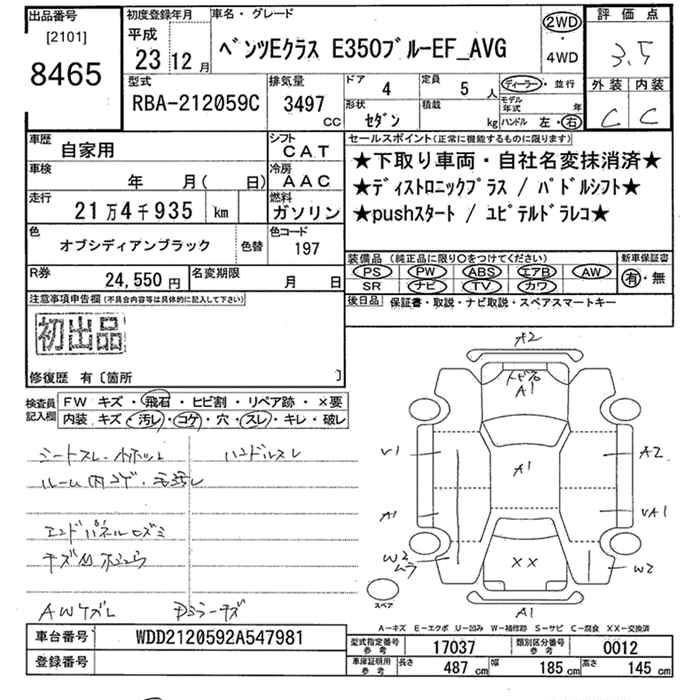 出品番号 初度登録年月 車名・グレード 評価点
[2101] 平成 2WD
8465 23 12月 ベンツEクラス E350ブルーEF_AVG ・ 3.5
4WD
型式 排気量 ドア 4 定員 5 人 ディーラー・並行 外装 内装
RBA-212059C 3497 CC 形状 セダン 積載 kg モデル年式 年 C C
ハンドル 左・右
車歴 自家用 シフト CAT セールスポイント(正常に機能するものに限ります)
車検 年 月( 日) 冷房 AAC ★下取り車両・自社名変抹消済★
走行 21万4千935 km 燃料 ガソリン ★ディストロニックプラス / パドルシフト★
★pushスタート / ユピテルドラレコ★
色 オブシディアンブラック 色替 色コード 197
装備品 (純正品に限り○をつけてください) 新車保証書
R券 24,550円 名変期限 月 日 PS PW ABS エアB AW 有・無
SR ナビ TV カワ
注意事項申告欄(不具合内容等は具体的に記入して下さい) 後日品 保証書・取説・ナビ取説・スペアスマートキー
初出品
修復歴 有〔箇所 〕
検査員記入欄 FW キズ・飛石・ヒビ割・リペア跡・×要
内装 キズ・汚レ・コゲ・穴・スレ・キレ・破レ
A2
トビ石
A1
シートスレ・ ハンドルスレ
V1 A1 A2
ルーム内コゲ・
A1 VA1
エンドパネルヒズミ
W2 ムラ XX W2
スペア
AWキズ Dミラーキズ
A1
A-キズ E-エクボ U-凹み W-補修跡 S-サビ C-腐食 XX-交換済
車台番号 WDD2120592A547981 型式指定番号参考 17037 類別区分番号参考 0012
登録番号 車庫証明用参考 長さ 487cm 幅 185cm 高さ 145cm